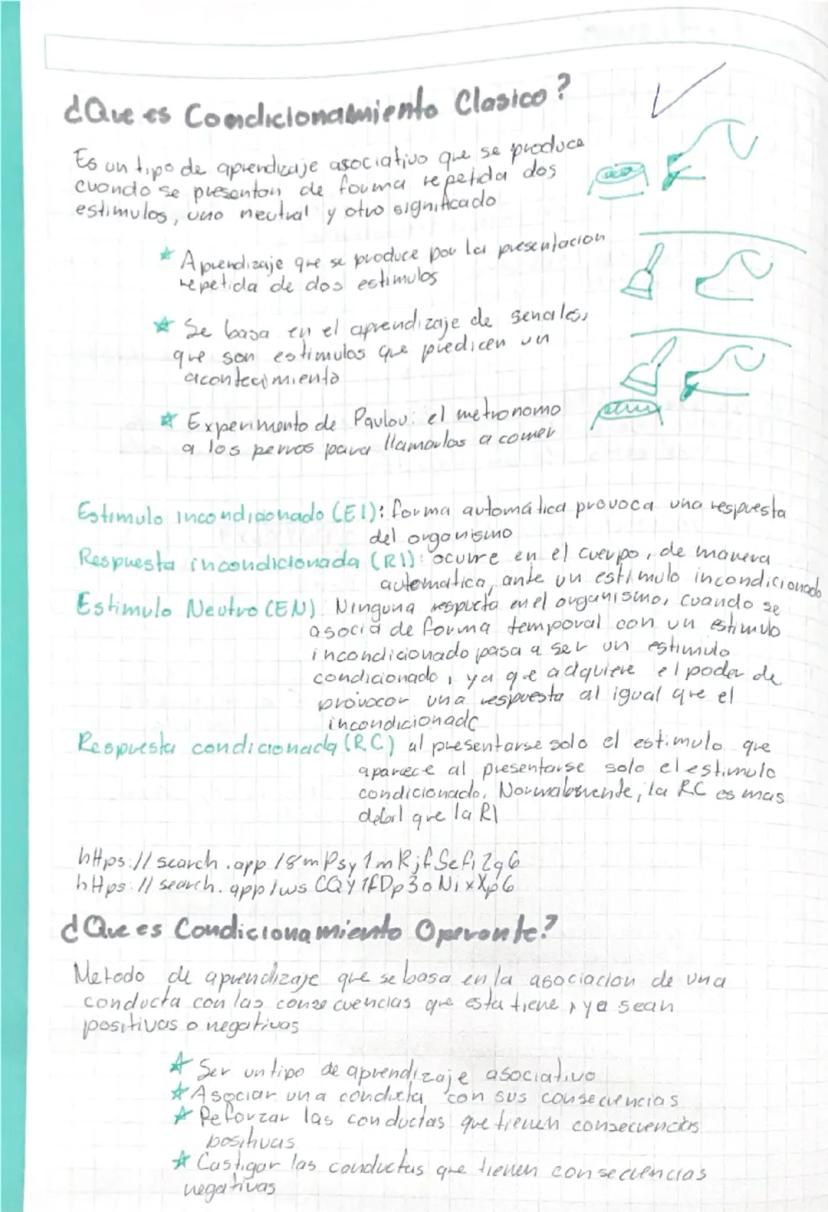 ¿Que es Condicionamiento Clasico?
Es un tipo de aprendizaje asociativo que se produce
cuando se presentan de forma repetida dos
estimulos, uno neutral y otro significado
Aprendizaje que se produce por la presentacion
repetida de dos estimulos
Se basa en el aprendizaje de senales,
que son estimulos que predicen un
acontecimiento
Experimento de Pavlov: el metronomo
a los perros para llamarlos a comer
Estimulo incondicionado (EI): forma automática provoca una respuesta
del organismo
Respuesta incondicionada (RI): ocurre en el cuerpo, de manera
automatica, ante un estimulo incondicionado
Estimulo Neutro (EN). Ninguna respueta en el organismo, cuando se
asocia de forma temporal con un estimulo
incondicionado pasa a ser un estimulo
condicionado, ya que adquiere el poder de
provocar una respuesta al igual que el
incondicionado
Respuesta condicionada (RC) al presentarse solo el estimulo que
aparece al presentarse solo el estimulo
condicionado. Normalmente, la RC es mas
debil que la RI
https://search.app/8mPsy1mRjfSefi2g6
https://search.app/wsCQY1fDp3oNixXp6
¿Que es Condicionamiento Operante?
Metodo de aprendizaje que se basa en la asociacion de una
conducta con las consecuencias que esta tiene, ya sean
positivas o negativas
Ser un tipo de aprendizaje asociativo
Asociar una conducta con sus consecuencias
Reforzar las conductas que tienen consecuencias
positivas
Castigar las conductas que tienen consecuencias
negativas